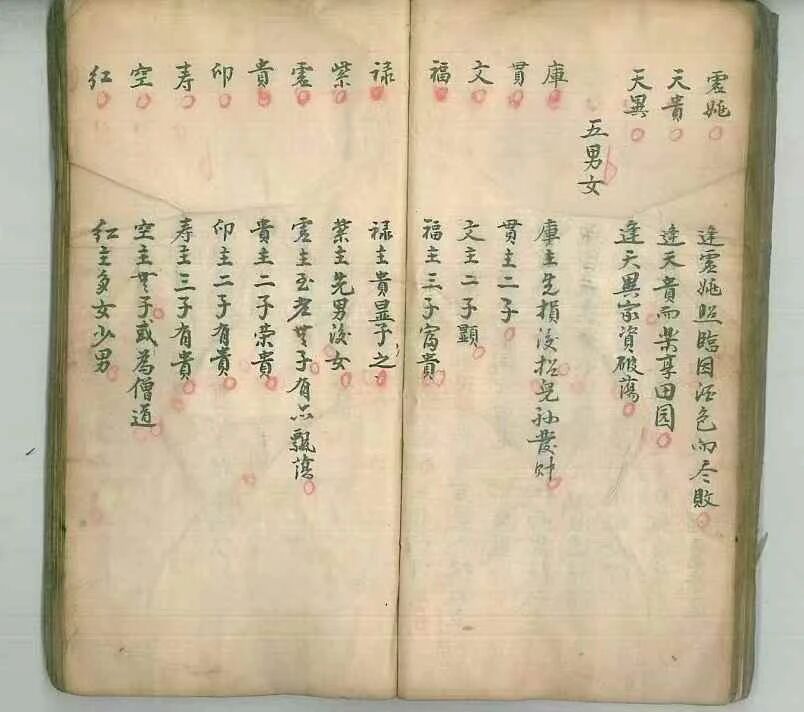 虛姚 逢虛姚照臨因酒色而尽敗
天貴 逢天貴而榮享田园
天異 逢天異家資破蕩
五男女
庫 庫主先損後招兒孙發财
貫 貫主二子
文 文主二子顯
福 福主三子富貴
禄 禄主貴显子之
紫 紫主先男後女
虛 虛主至老無子有亦飄蕩
貴 貴主二子荣貴
印 印主二子有貴
寿 寿主三子有貴
空 空主無子或為僧道
红 红主多女少男